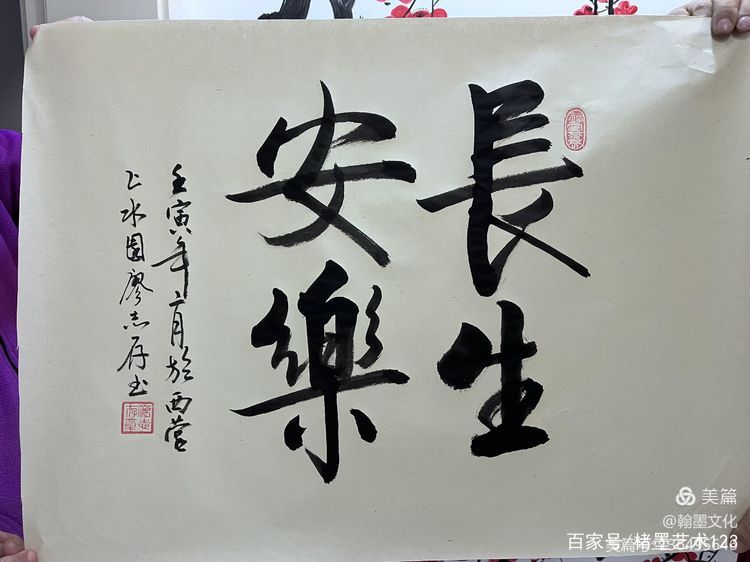 長生
安樂
壬寅年二月於西營
上水園廖志存书
廖志存章
美篇
@翰墨文化
百家号/楮墨艺术123